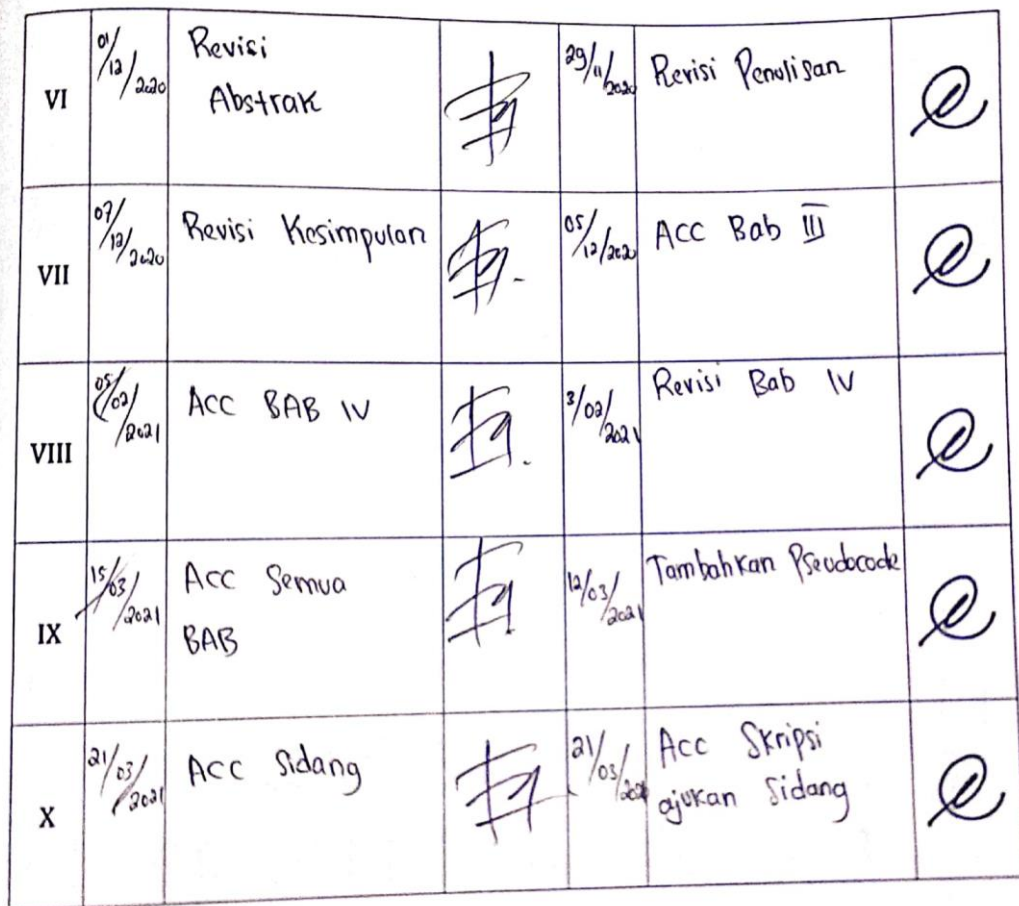 VI
01/12/2020
Revisi
Abstrak
29/11/2020
Revisi Penulisan
VII
07/12/2020
Revisi Kesimpulan
05/12/2020
ACC Bab III
VIII
05/02/2021
ACC BAB IV
3/02/2021
Revisi Bab IV
IX
15/03/2021
Acc Semua
BAB
12/03/2021
Tambahkan Pseudocode
X
21/03/2021
Acc Sidang
21/03/2021
Acc Skripsi
ajukan Sidang